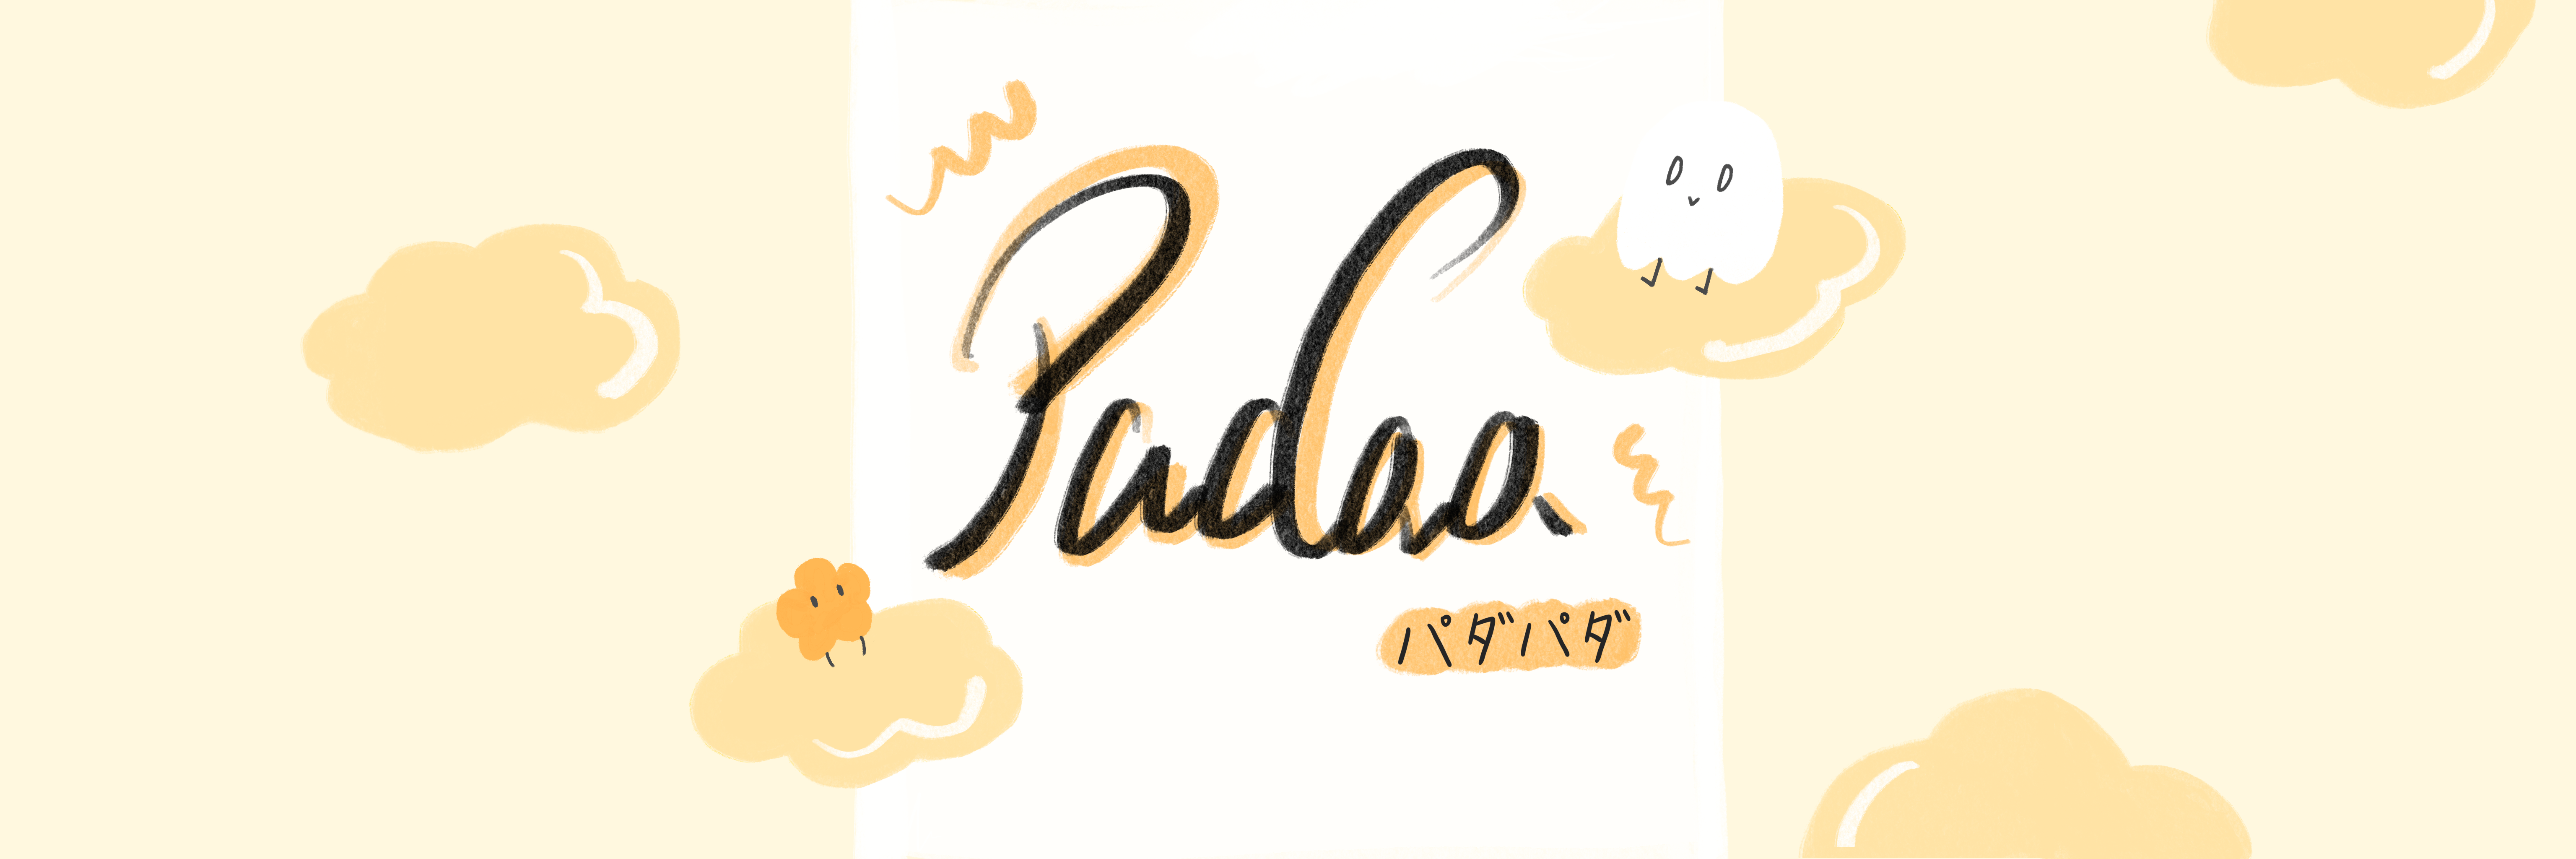 Padaa
パダパダ